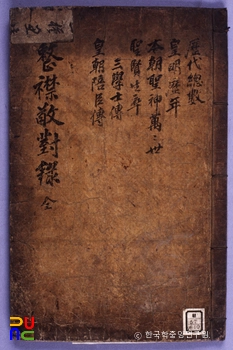 歷代總數
皇明歷年
本朝聖神萬〻世
聖賢生卒
三學士傳
皇朝陪臣傳
整襟敬對錄 全
ⓒ 한국학중앙연구원